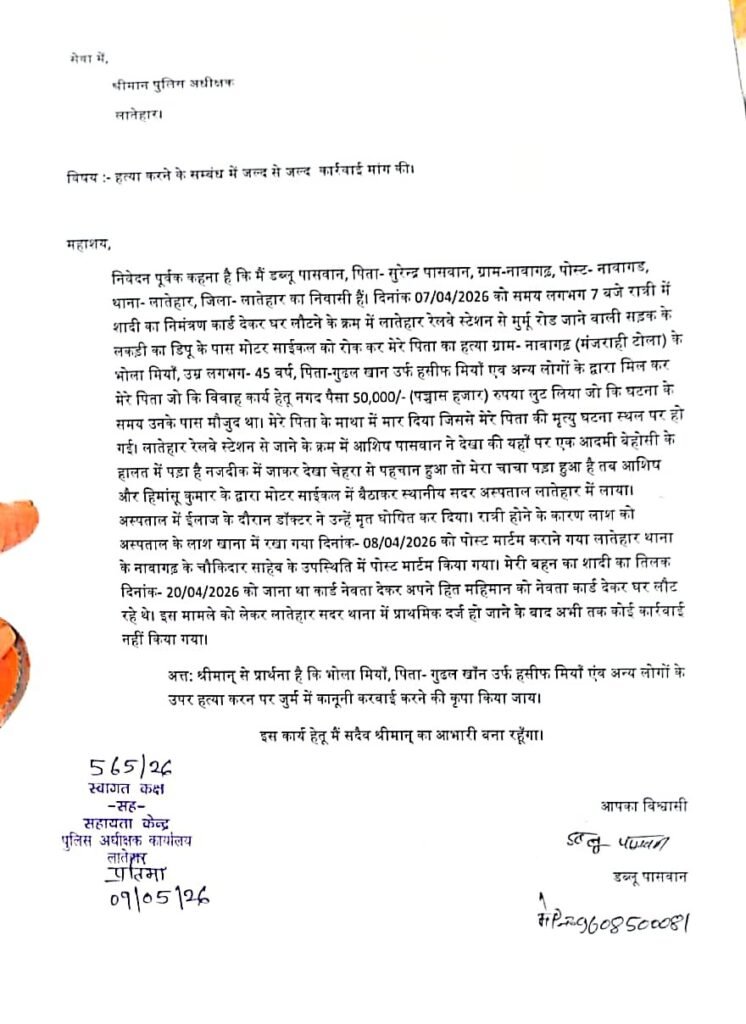 सेवा में,
श्रीमान पुलिस अधीक्षक
लातेहार।
विषय :- हत्या करने के सम्बंध में जल्द से जल्द कार्रवाई मांग की।
महाशय,
निवेदन पूर्वक कहना है कि मैं डब्लू पासवान, पिता- सुरेन्द्र पासवान, ग्राम-नावागढ़, पोस्ट- नावागड,
थाना- लातेहार, जिला- लातेहार का निवासी हैं। दिनांक 07/04/2026 को समय लगभग 7 बजे रात्री में
शादी का निमंत्रण कार्ड देकर घर लौटने के क्रम में लातेहार रेलवे स्टेशन से मुर्मू रोड जाने वाली सड़क के
लकड़ी का डिपू के पास मोटर साईकल को रोक कर मेरे पिता का हत्या ग्राम- नावागढ़ (मंजराही टोला) के
भोला मियाँ, उम्र लगभग- 45 वर्ष, पिता-गुढल खान उर्फ हसीफ मियाँ एव अन्य लोगों के द्वारा मिल कर
मेरे पिता जो कि विवाह कार्य हेतू नगद पैसा 50,000/- (पच्चास हजार) रुपया लुट लिया जो कि घटना के
समय उनके पास मौजुद था। मेरे पिता के माथा में मार दिया जिससे मेरे पिता की मृत्यु घटना स्थल पर हो
गई। लातेहार रेलवे स्टेशन से जाने के क्रम में आशिष पासवान ने देखा की यहाँ पर एक आदमी बेहोसी के
हालत में पड़ा है नजदीक में जाकर देखा चेहरा से पहचान हुआ तो मेरा चाचा पड़ा हुआ है तब आशिष
और हिमांसू कुमार के द्वारा मोटर साईकल में बैठाकर स्थानीय सदर अस्पताल लातेहार में लाया।
अस्पताल में ईलाज के दौरान डॉक्टर ने उन्हें मृत घोषित कर दिया। रात्री होने के कारण लाश को
अस्पताल के लाश खाना में रखा गया दिनांक- 08/04/2026 को पोस्ट मार्टम कराने गया लातेहार थाना
के नावागढ़ के चौकिदार साहेब के उपस्थिति में पोस्ट मार्टम किया गया। मेरी बहन का शादी का तिलक
दिनांक- 20/04/2026 को जाना था कार्ड नेवता देकर अपने हित महिमान को नेवता कार्ड देकर घर लौट
रहे थे। इस मामले को लेकर लातेहार सदर थाना में प्राथमिक दर्ज हो जाने के बाद अभी तक कोई कार्रवाई
नहीं किया गया।
अत्त: श्रीमान् से प्रार्थना है कि भोला मियाँ, पिता- गुढल खाँन उर्फ हसीफ मियाँ एंव अन्य लोगों के
उपर हत्या करन पर जुर्म में कानूनी करवाई करने की कृपा किया जाय।
इस कार्य हेतू मैं सदैव श्रीमान् का आभारी बना रहूँगा।
565/26
स्वागत कक्ष
-सह-
सहायता केन्द्र
पुलिस अधीक्षक कार्यालय
लातेहार
प्रतिमा
09/05/26
आपका विश्वासी
डब्लू पासवान
डब्लू पासवान
9608500081